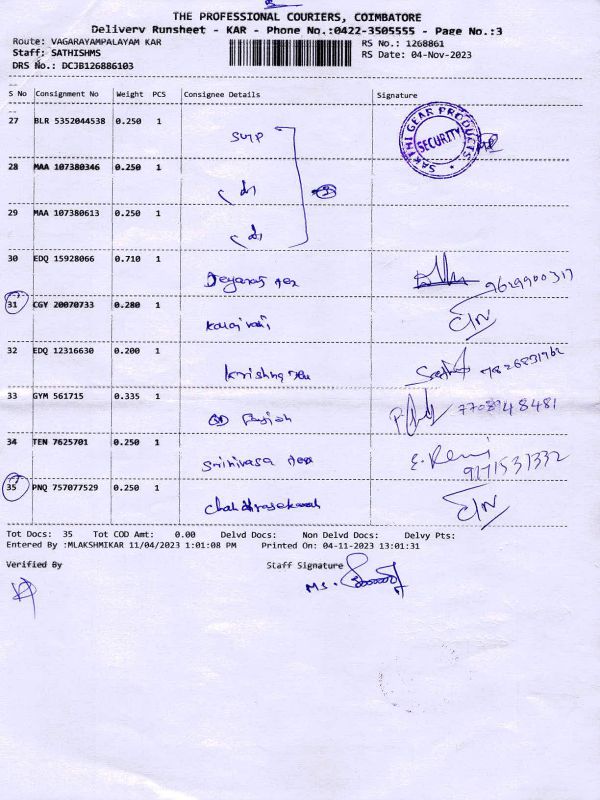 THE PROFESSIONAL COURIERS, COIMBATORE
Delivery Runsheet - KAR - Phone No.:0422-3505555 - Page No.:3
Route: VAGARAYAMPALAYAM KAR
RS No.: 1268861
Staff: SATHISHMS
RS Date: 04-Nov-2023
DRS No.: DCJB126886103
S No Consignment No Weight PCS Consignee Details Signature
27 BLR 5352044538 0.250 1
SAKTHI GEAR PRODUCTS
SECURITY
28 MAA 107380346 0.250 1
29 MAA 107380613 0.250 1
30 EDQ 15928066 0.710 1
9629900317
31 CGY 20070733 0.280 1
32 EDQ 12316630 0.200 1
Krishna
33 GYM 561715 0.335 1
7708948481
34 TEN 7625701 0.250 1
Srinivasa
9171531332
35 PNQ 757077529 0.250 1
Chandrasekaran
Tot Docs: 35 Tot COD Amt: 0.00 Delvd Docs: Non Delvd Docs: Delvy Pts:
Entered By :MLAKSHMIKAR 11/04/2023 1:01:08 PM Printed On: 04-11-2023 13:01:31
Verified By Staff Signature